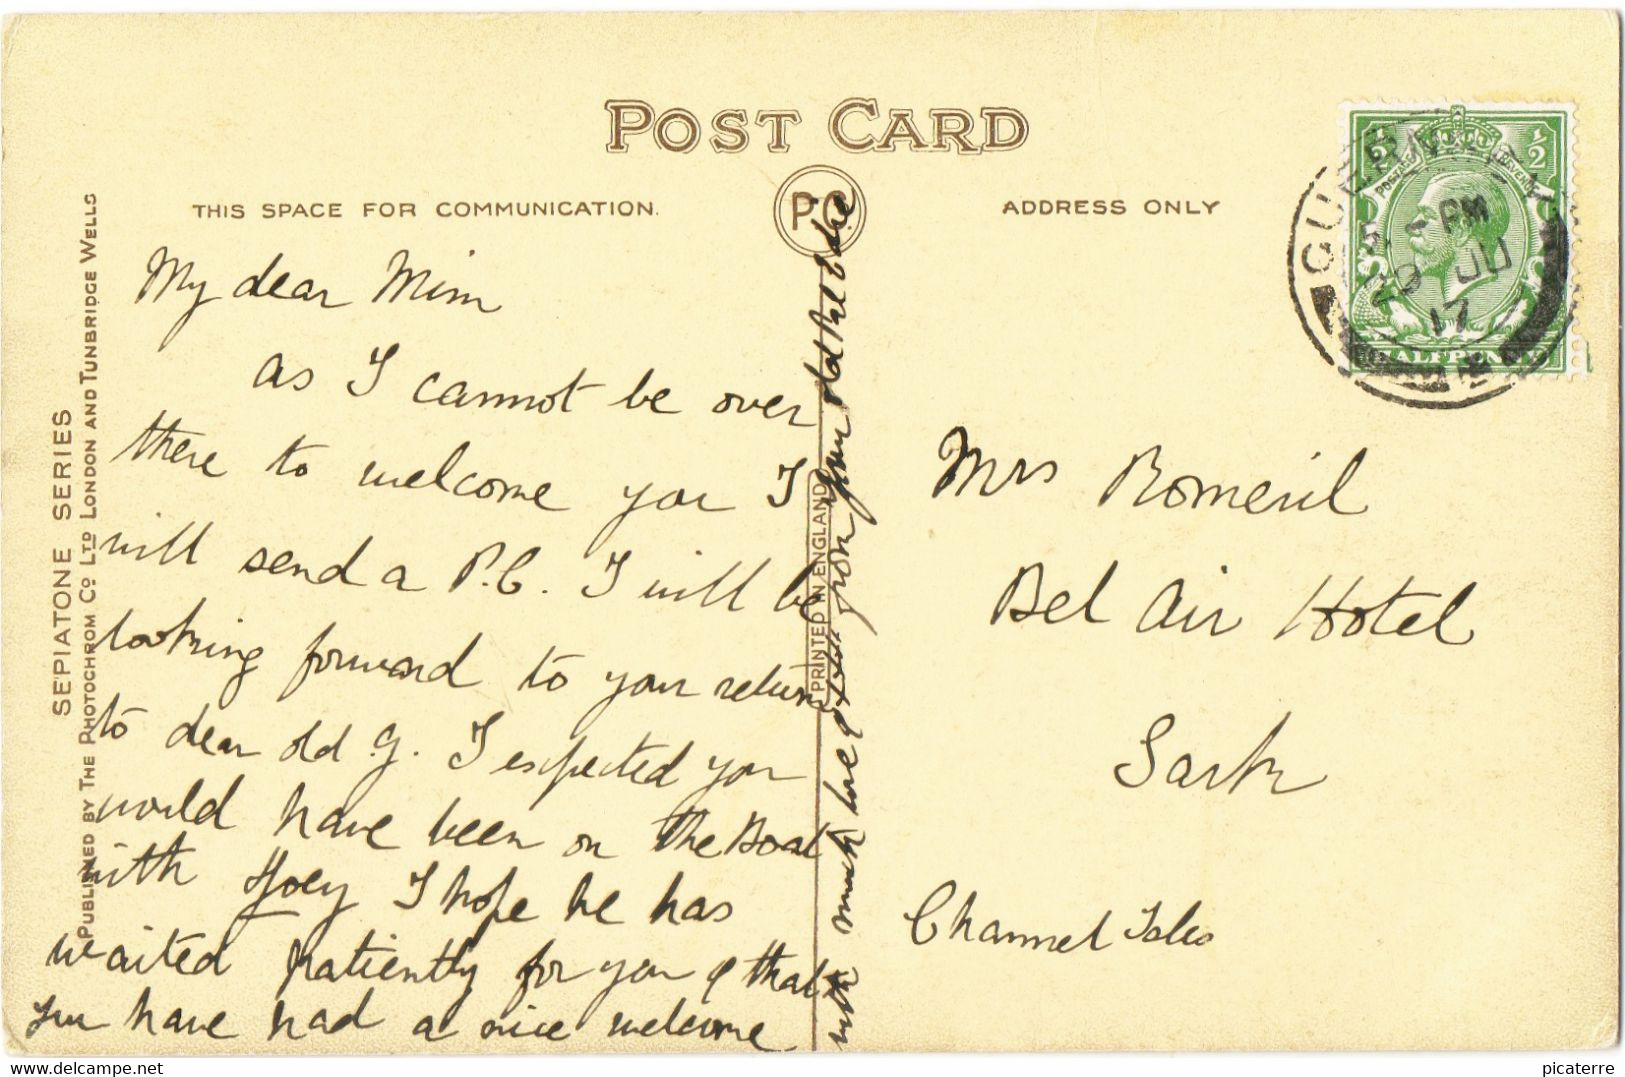 POST CARD
THIS SPACE FOR COMMUNICATION.
P.C.
ADDRESS ONLY
SEPIATONE SERIES
PUBLISHED BY THE PHOTOCHROM CO LTD LONDON AND TUNBRIDGE WELLS
PRINTED IN ENGLAND
My dear Mim
as I cannot be over
there to welcome you I
will send a P.C. I will be
looking forward to your return
to dear old G. I expected you
would have been on the Boat
with Joey I hope he has
waited patiently for you & that
you have had a nice welcome
with much love & xxxx from your old Pal Edie
GUERNSEY
PM
29 JU
17
½ ½
POSTAGE REVENUE
HALFPENNY
Mrs Romeril
Bel Air Hotel
Sark
Channel Isles
www.delcampe.net
picaterre